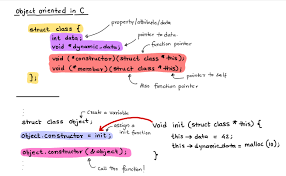 Object oriented in C
struct class {
property/attribute/data
int data;
pointer to data
void *dynamic_data;
function pointer
void (*constructor)(struct class *this);
void (*member)(struct class *this);
};
pointer to self
Also function pointer
create a variable
struct class object;
assign a
init function
object.constructor = init;
object.constructor (&object);
call the function!
void init (struct class *this) {
this → data = 42;
this → dynamic_data = malloc (10);
}